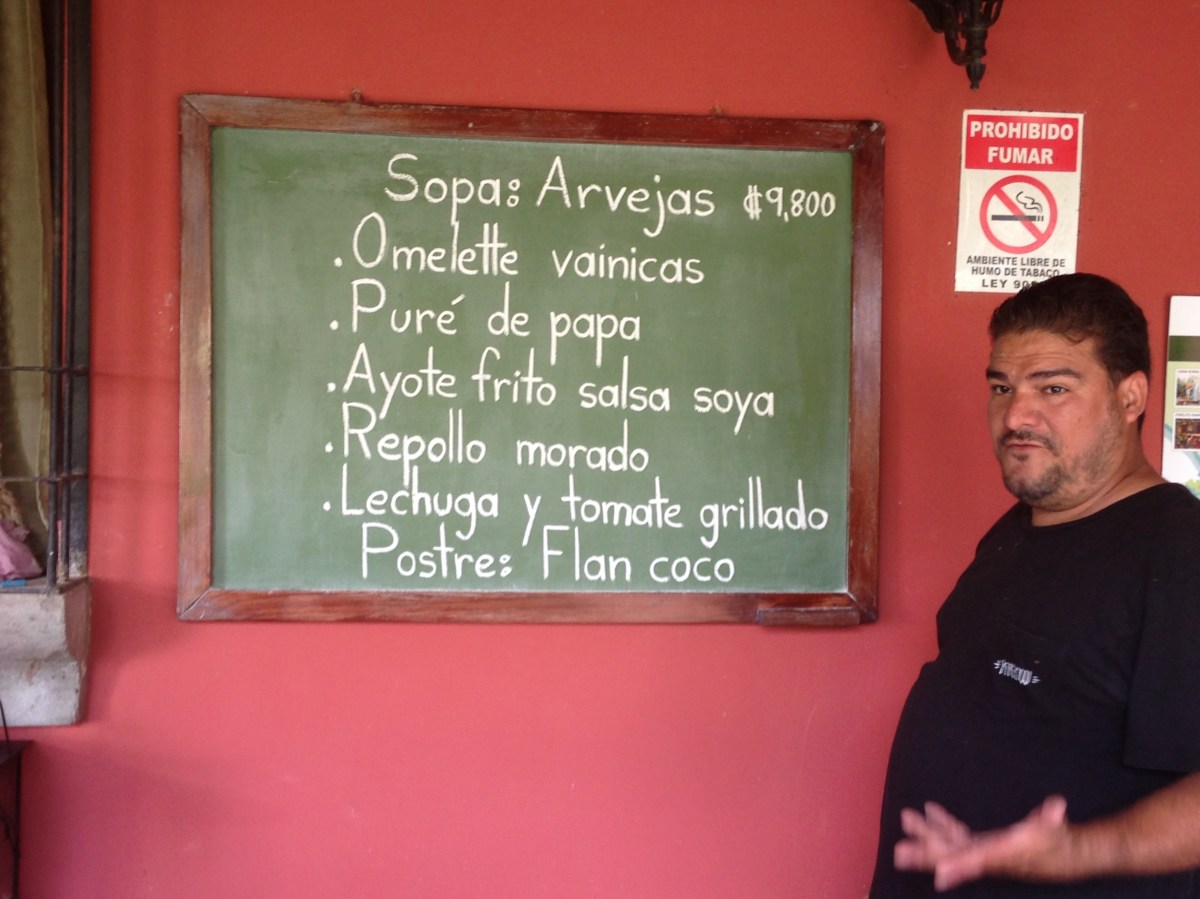 Sopa: Arvejas ₡9,800
.Omelette vaínicas
.Puré de papa
.Ayote frito salsa soya
.Repollo morado
.Lechuga y tomate grillado
Postre: Flan coco
PROHIBIDO
FUMAR
AMBIENTE LIBRE DE
HUMO DE TABACO
LEY